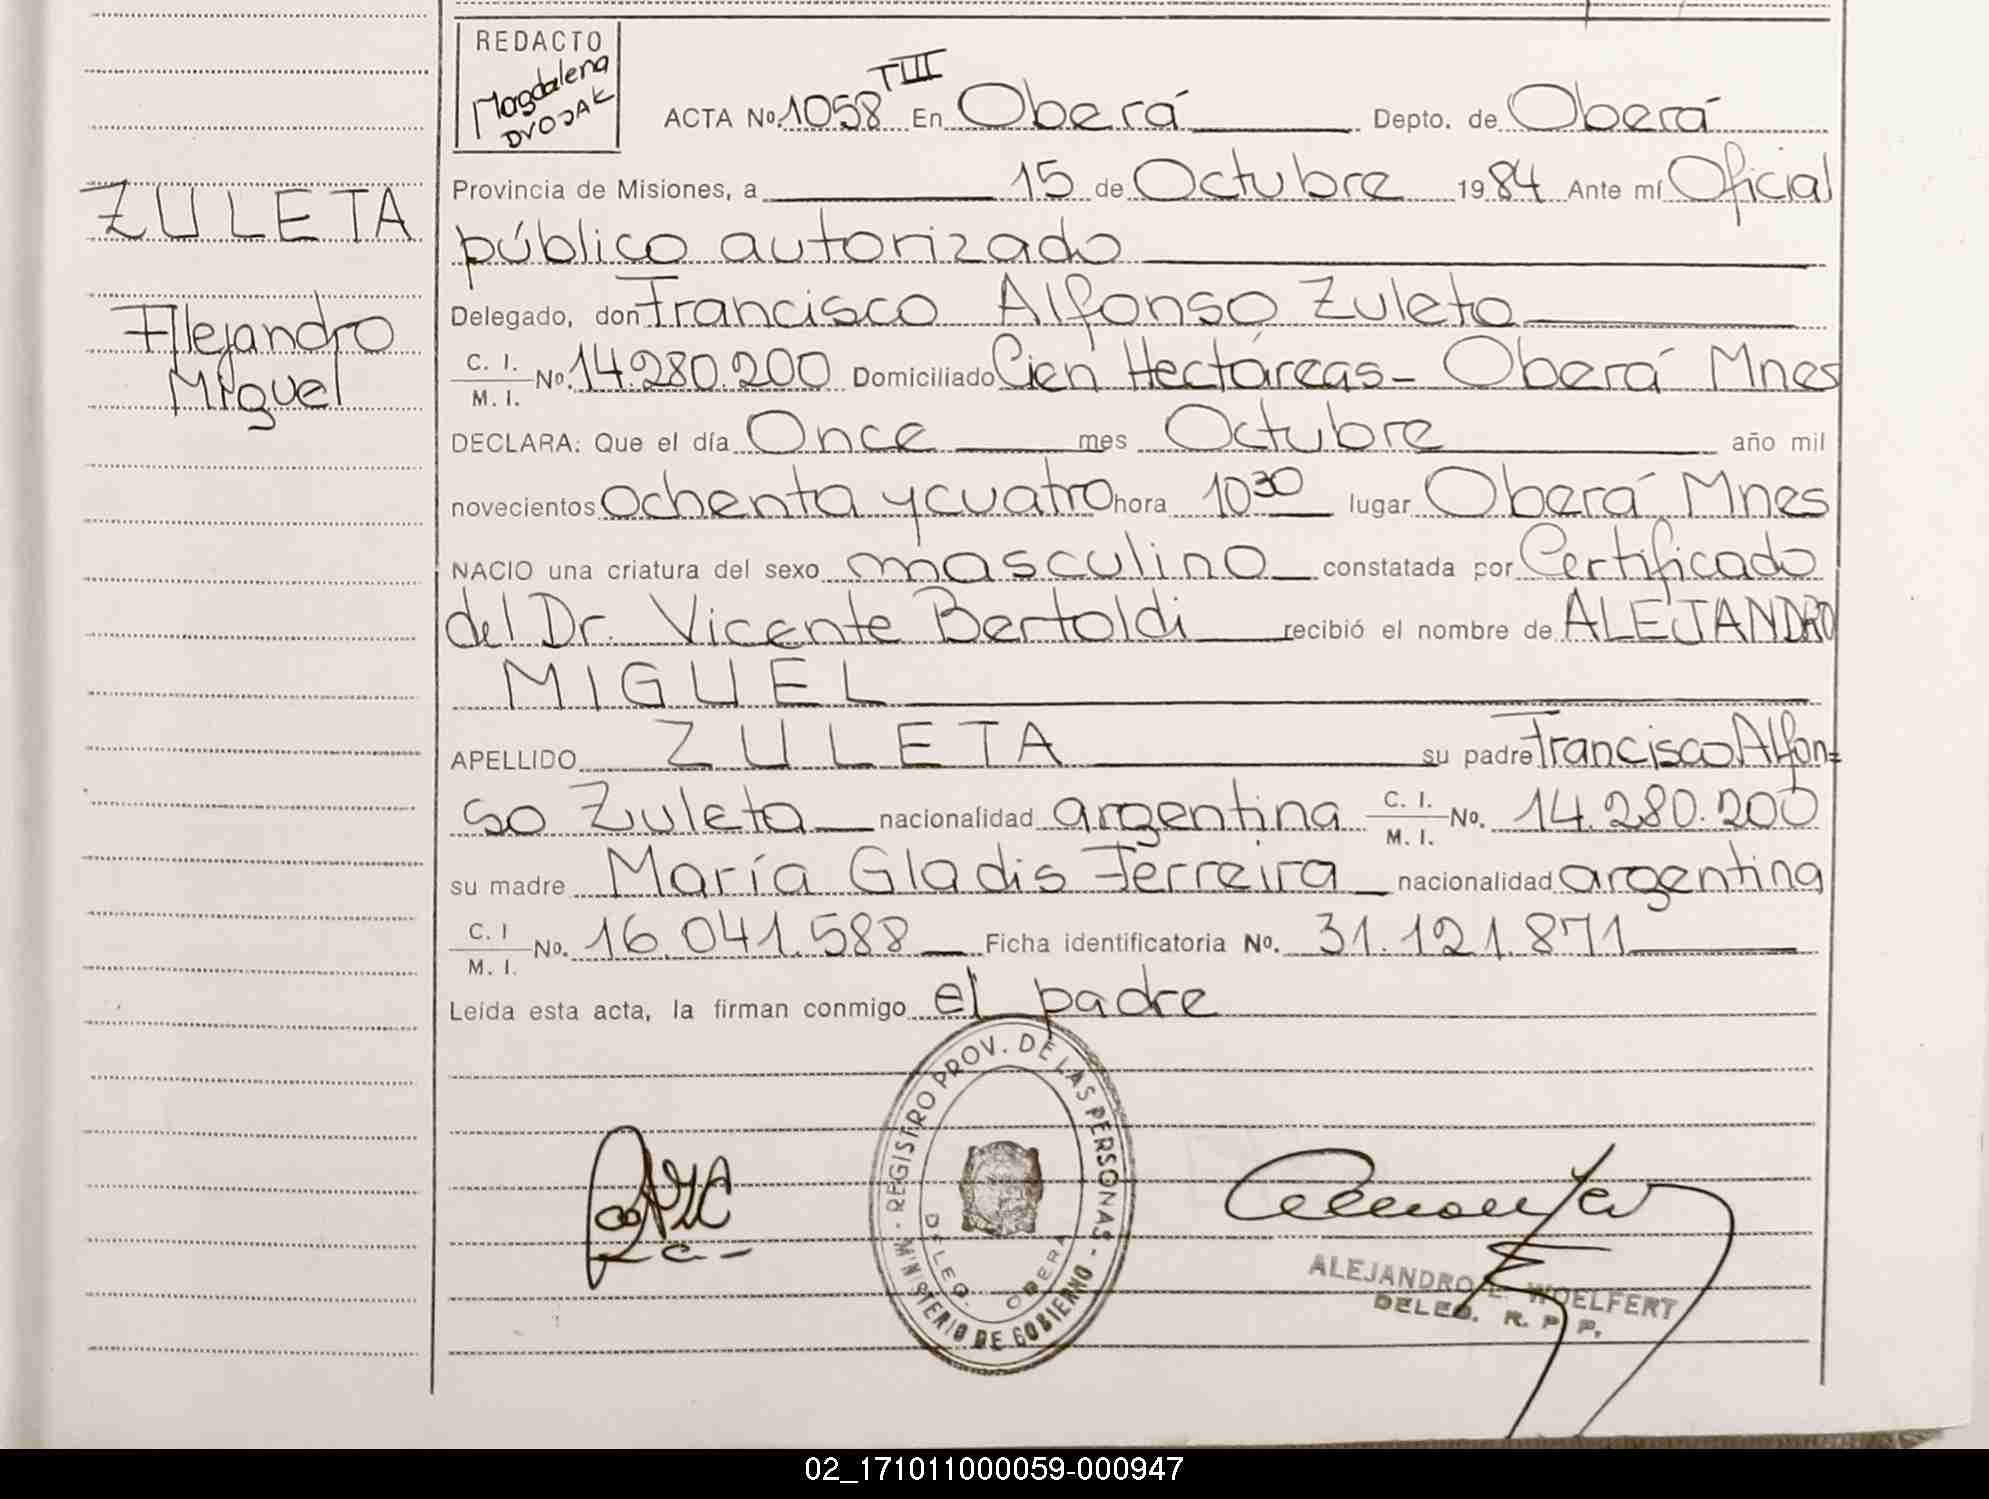 REDACTO
Magdalena
DVOJAK
ZULETA
Alejandro
Miguel
ACTA Nº 1058 TIII En Oberá Depto. de Oberá
Provincia de Misiones, a 15 de Octubre 1984 Ante mí Oficial
público autorizado
Delegado, don Francisco Alfonso Zuleta
C. I. / M. I. Nº. 14.280.200 Domiciliado Cien Hectáreas - Oberá Mnes
DECLARA: Que el día Once mes Octubre año mil
novecientos ochenta y cuatro hora 10 30 lugar Oberá Mnes
NACIO una criatura del sexo masculino constatada por Certificado
del Dr. Vicente Bertoldi recibió el nombre de ALEJANDRO
MIGUEL
APELLIDO ZULETA su padre Francisco Alfon=
so Zuleta nacionalidad argentina C. I. / M. I. Nº. 14.280.200
su madre María Gladis Ferreira nacionalidad argentina
C. I / M. I. Nº. 16.041.588 Ficha identificatoria Nº. 31.121.871
Leída esta acta, la firman conmigo el padre
REGISTRO PROV. DE LAS PERSONAS - MINISTERIO DE GOBIERNO -
DELEG. OBERA
ALEJANDRO E. WOELFERT
DELEG. R. P. P.
02_171011000059-000947